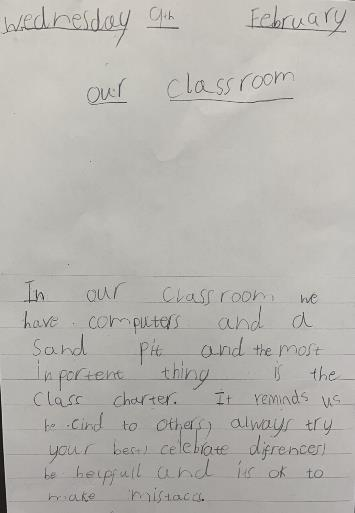 Wednesday 9th February
Our Classroom
In our classroom we
have computers and a
Sand pit and the most
inportent thing is the
Class charter. It reminds us
be cind to others, always try
your best, celebrate difrences,
be helpfull and its ok to
make mistaccs.